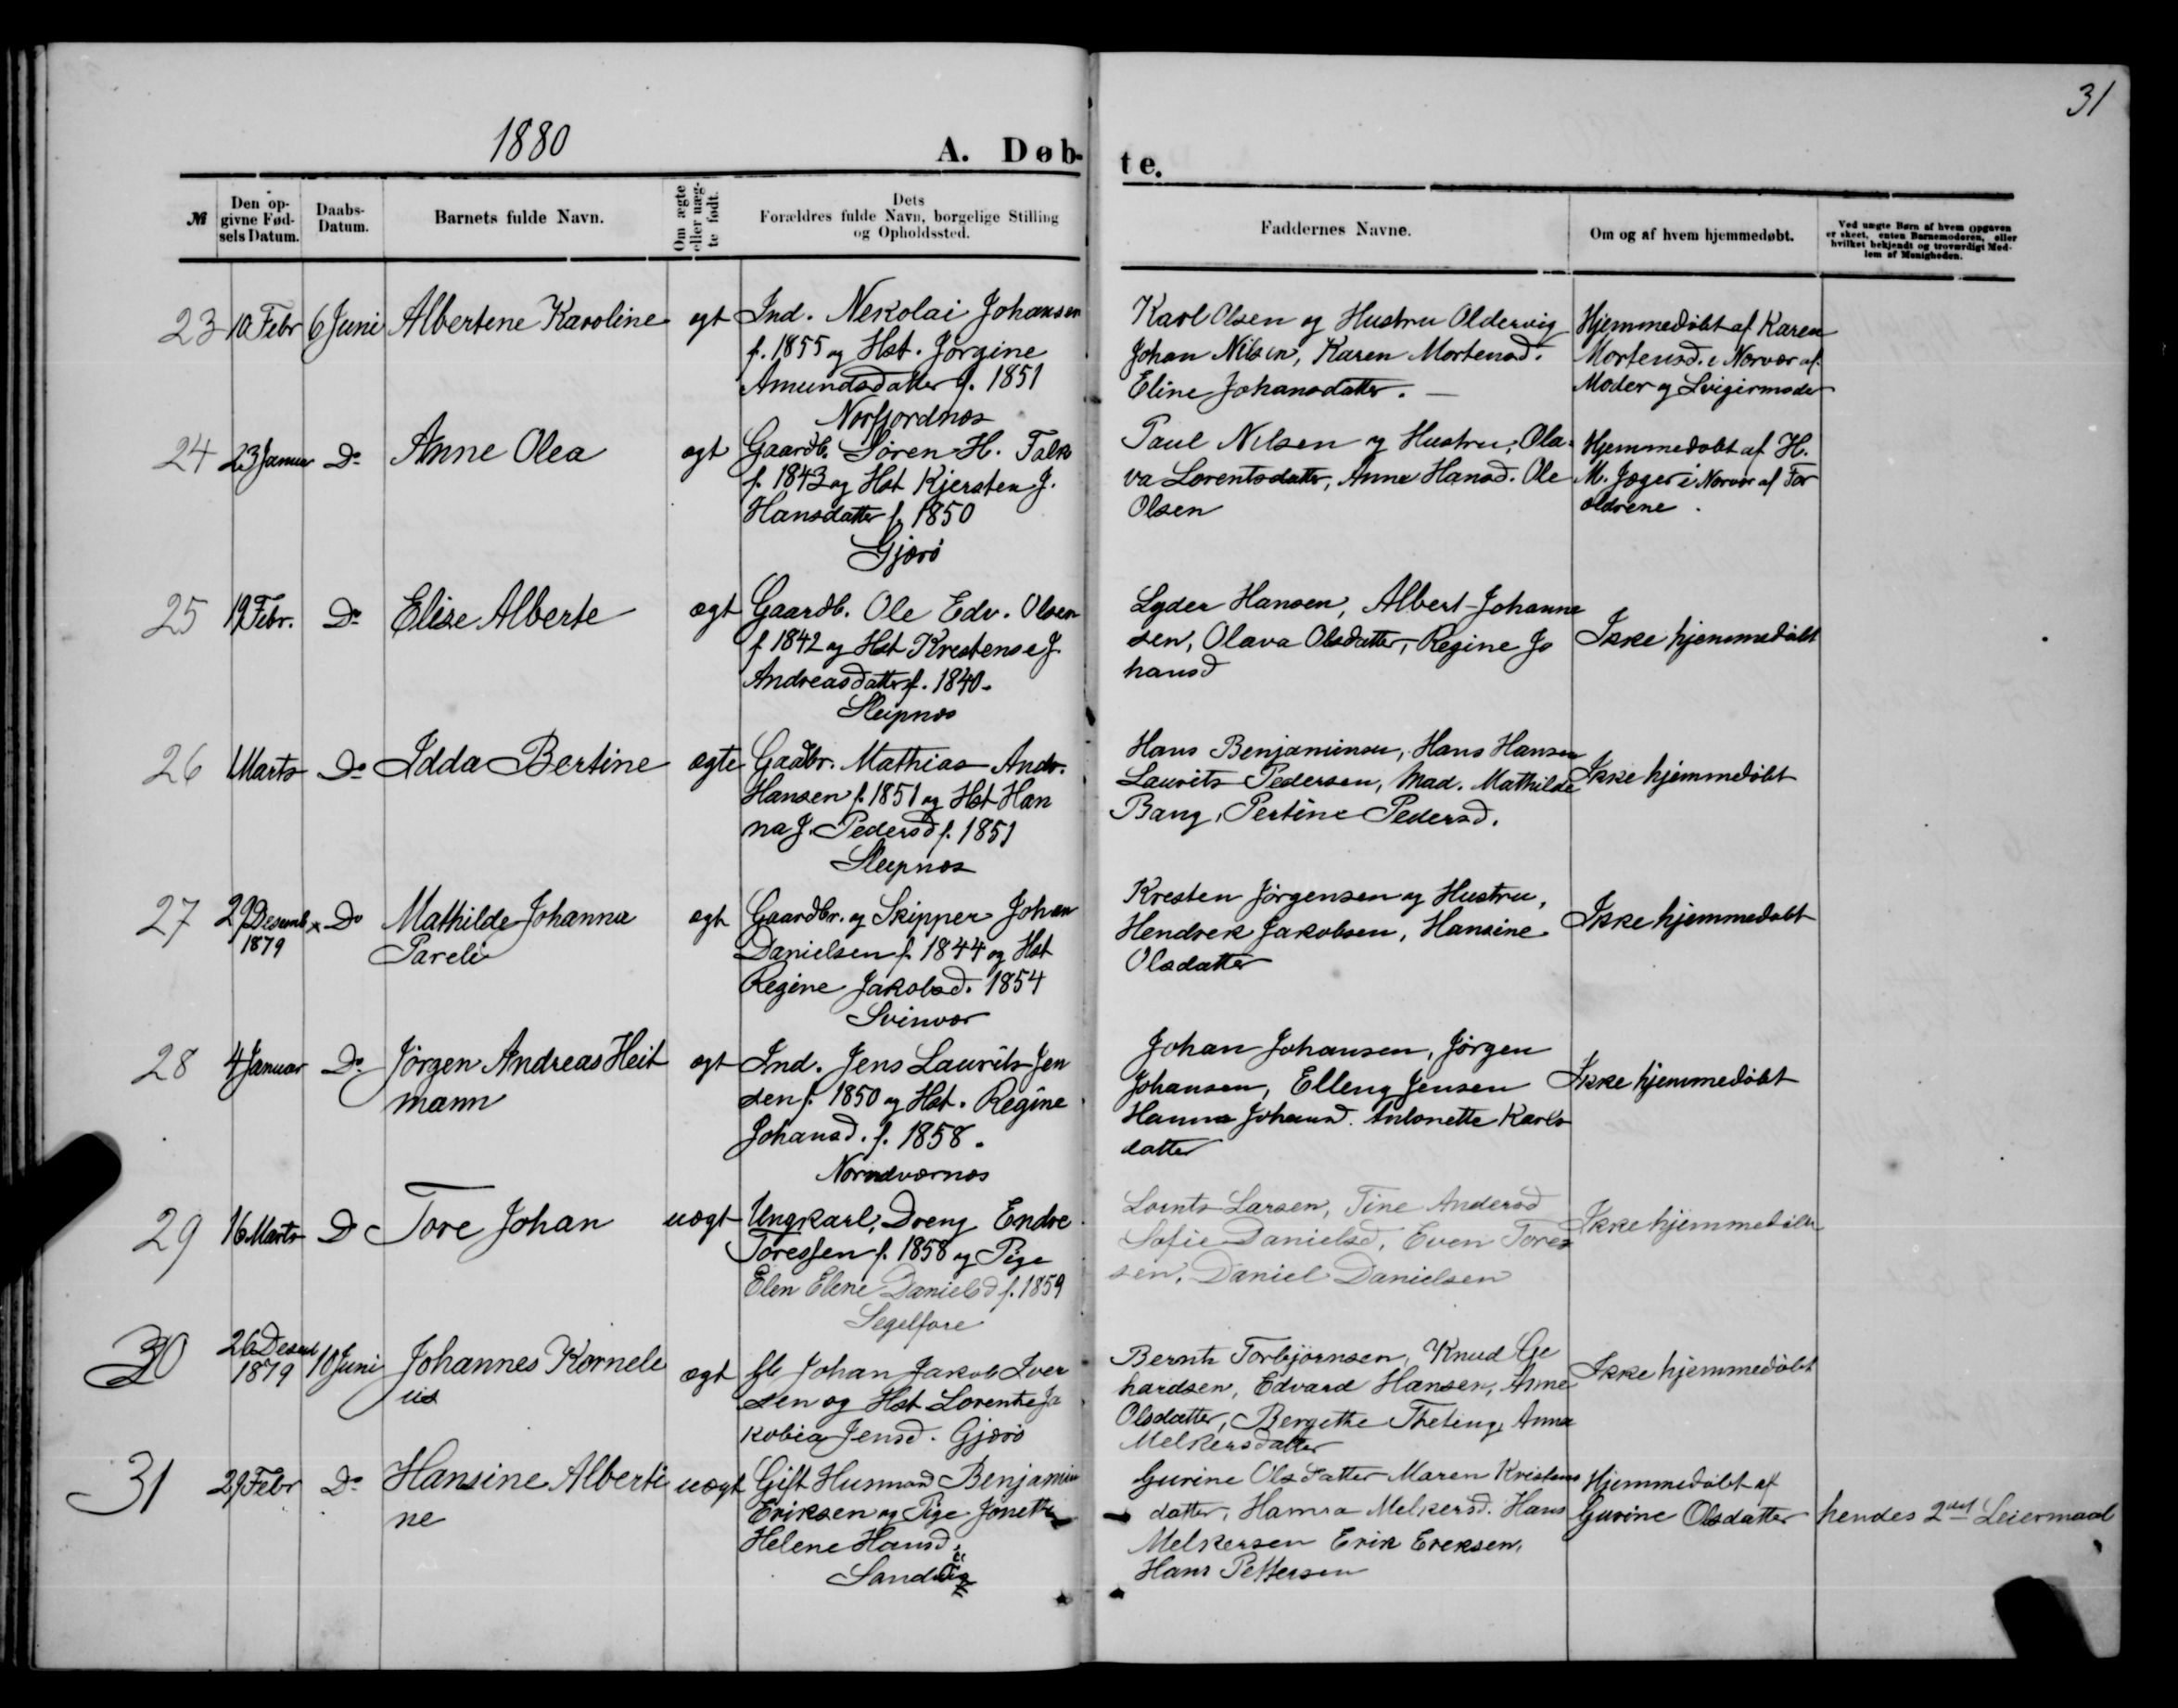 31
1880
A. Døb-
te.
№
Den op-
givne Fød-
sels Datum.
Daabs-
Datum.
Barnets fulde Navn.
Om ægte
eller uæg-
te født.
Dets
Forældres fulde Navn, borgelige Stilling
og Opholdssted.
Faddernes Navne.
Om og af hvem hjemmedøbt.
Ved uægte Børn af hvem Opgaven
er skeet, enten Barnemoderen, eller
hvilket bekjendt og troværdigt Med-
lem af Menigheden.
23
10 Febr
6 Juni
Albertene Karoline
egt
Ind. Nekolai Johansen
f. 1855 og Hst. Jørgine
Amundsdatter f. 1851
Norfjordnæs
Karl Olsen og Hustru Oldervig
Johan Nilsen, Karen Mortensd.
Eline Johansdatter. —
Hjemmedøbt af Karen
Mortensd. i Nærvær af
Moder og Svigermoder
24
23 Januar
Do
Anne Olea
egt
Gaardb. Søren H. Falk
f. 1843 og Hst Kjersten J.
Hansdatter f. 1850
Gjærø
Paul Nilsen og Hustru, Ola-
va Lorentsdatter, Anne Hansd. Ole
Olsen
Hjemmedøbt af H.
M. Jæger i Nærvær af For
ældrene.
25
19 Febr.
Do
Elise Alberte
ægt
Gaardb. Ole Edv. Olsen
f 1842 og Hst Krestense J.
Andreasdatter f. 1840.
Sleipnæs
Lyder Hansen, Albert Johanne
sen, Olava Olsdatter, Regine Jo
hansd
Ikke hjemmedøbt
26
1 Marts
Do
Idda Bertine
ægte
Gadbr. Mathias Andr.
Hansen f. 1851 og Hst Han
na J. Pedersd f. 1851
Sleipnæs
Hans Benjaminsen, Hans Hansen
Laurits Pedersen, Mad. Mathilde
Bang, Pertine Pedersd.
Ikke hjemmedøbt
27
29 Desemb
1879
x Do
Mathilde Johanna
Pareli
ægt
Gaardbr. og Skipper Johan
Danielsen f. 1844 og Hst
Regine Jakobsd. 1854
Svinvær
Kresten Jørgensen og Hustru,
Hendrek Jakobsen, Hansine
Olsdatter
Ikke hjemmedøbt
28
4 Januar
Do
Jørgen Andreas Heit
mann
egt
Ind. Jens Laurits Jen
sen f. 1850 og Hst. Regine
Johansd. f. 1858.
Nordværnes
Johan Johansen, Jørgen
Johansen, Elleng Jensen
Hanna Johansd. Antonette Karls
datter
Ikke hjemmedøbt
29
16 Marts
D
Tore Johan
uægt
Ungkarl, Dreng Endre
Toressen f. 1858 og Pige
Elen Elene Danielsd f. 1859
Segelfore
Lornts Larsen, Tine Andersd
Sofie Danielsd, Even Tores
sen, Daniel Danielsen
Ikke hjemmedøbt
30
26 Desem
1879
10 Juni
Johannes Kornele
us
ægt
Johan Jakob Iver
sen og Hst Lorentse Ja
kobia Jensd. Gjærø
Bernts Torbjørnsen, Knud Ge
hardsen, Edvard Hansen, Anne
Olsdatter, Bergethe Theting, Anna
Melkersdatter
Ikke hjemmedøbt
31
29 Febr
Do
Hansine Alberti
ne
uægt
Gift Husmand Benjamin
Eriksen og Pige Jonette
Helene Hansd.
Gurine Olsdatter Maren Kristens
datter, Hanna Melkersd. Hans
Melkersen Erik Ereksen,
Hans Pettersen
Hjemmedøbt af
Gurine Olsdatter
hendes 2det Leiermaal